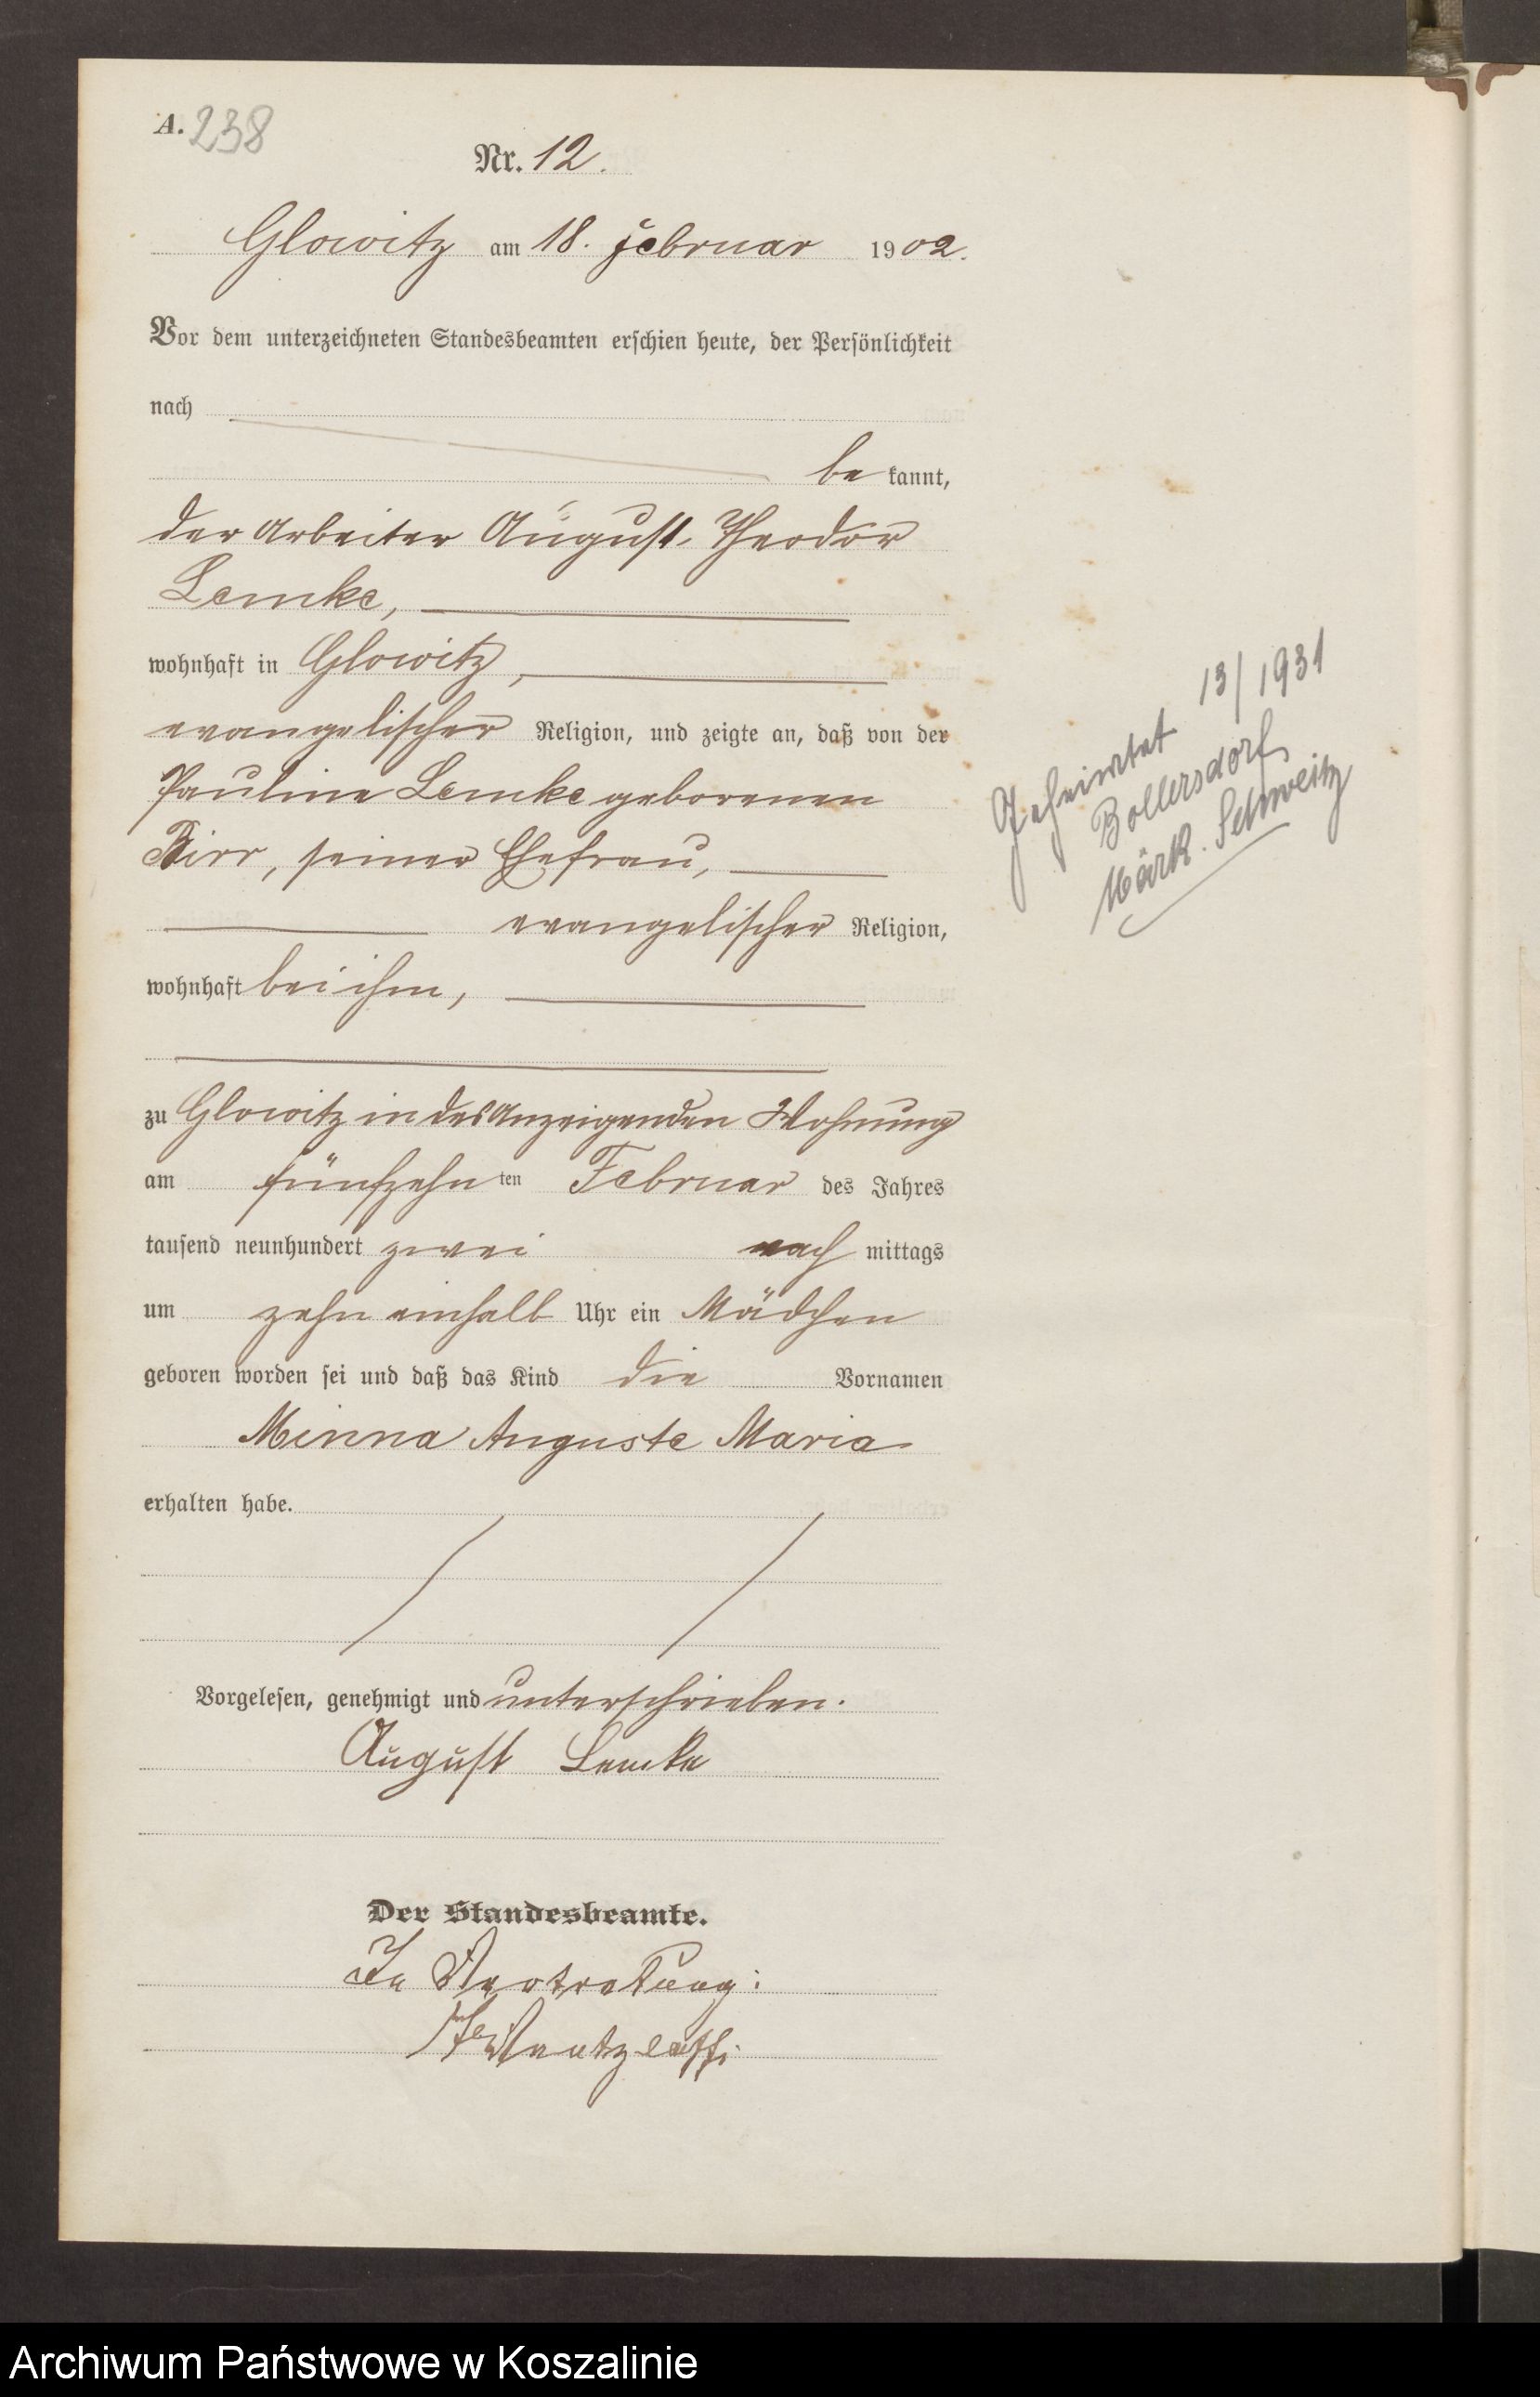 A. 238
Nr. 12.
Glowitz am 18. Februar 1902.
Vor dem unterzeichneten Standesbeamten erschien heute, der Persönlichkeit
nach
be kannt,
der Arbeiter August Theodor
Lemke,
wohnhaft in Glowitz,
evangelischer Religion, und zeigte an, daß von der
Pauline Lemke geborenen
Birr, seiner Ehefrau,
evangelischer Religion,
wohnhaft bei ihm,
zu Glowitz in des Anzeigenden Wohnung
am fünfzehn ten Februar des Jahres
tausend neunhundert zwei nach mittags
um zehn einhalb Uhr ein Mädchen
geboren worden sei und daß das Kind die Vornamen
Minna Auguste Maria
erhalten habe.
Vorgelesen, genehmigt und unterschrieben.
August Lemke
Der Standesbeamte.
In Vertretung:
Geheiratet 13/1931
Bollersdorf
Märk. Schweitz
Archiwum Państwowe w Koszalinie